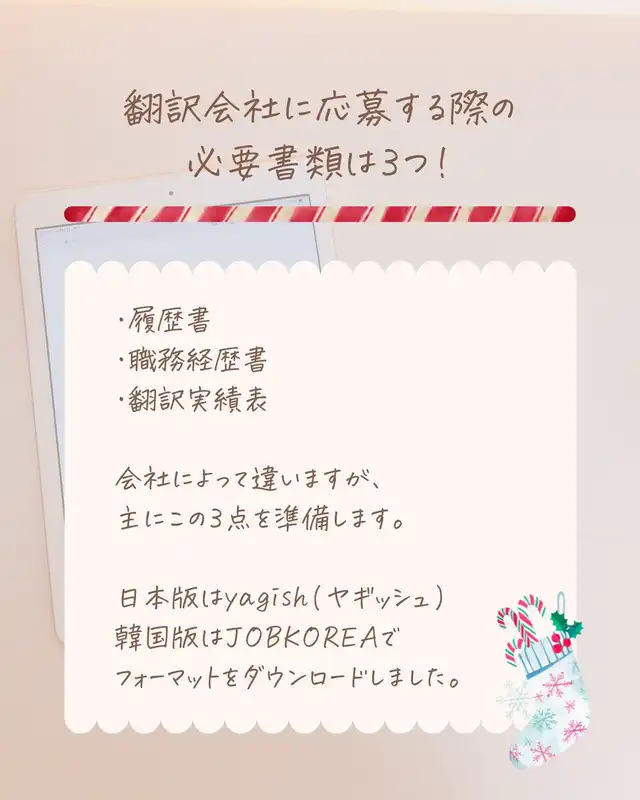 翻訳会社に応募する際の
必要書類は3つ!
・履歴書
・職務経歴書
・翻訳実績表
会社によって違いますが、
主にこの3点を準備します。
日本版はyagish(ヤギッシュ)
韓国版はJOBKOREAで
フォーマットをダウンロードしました。